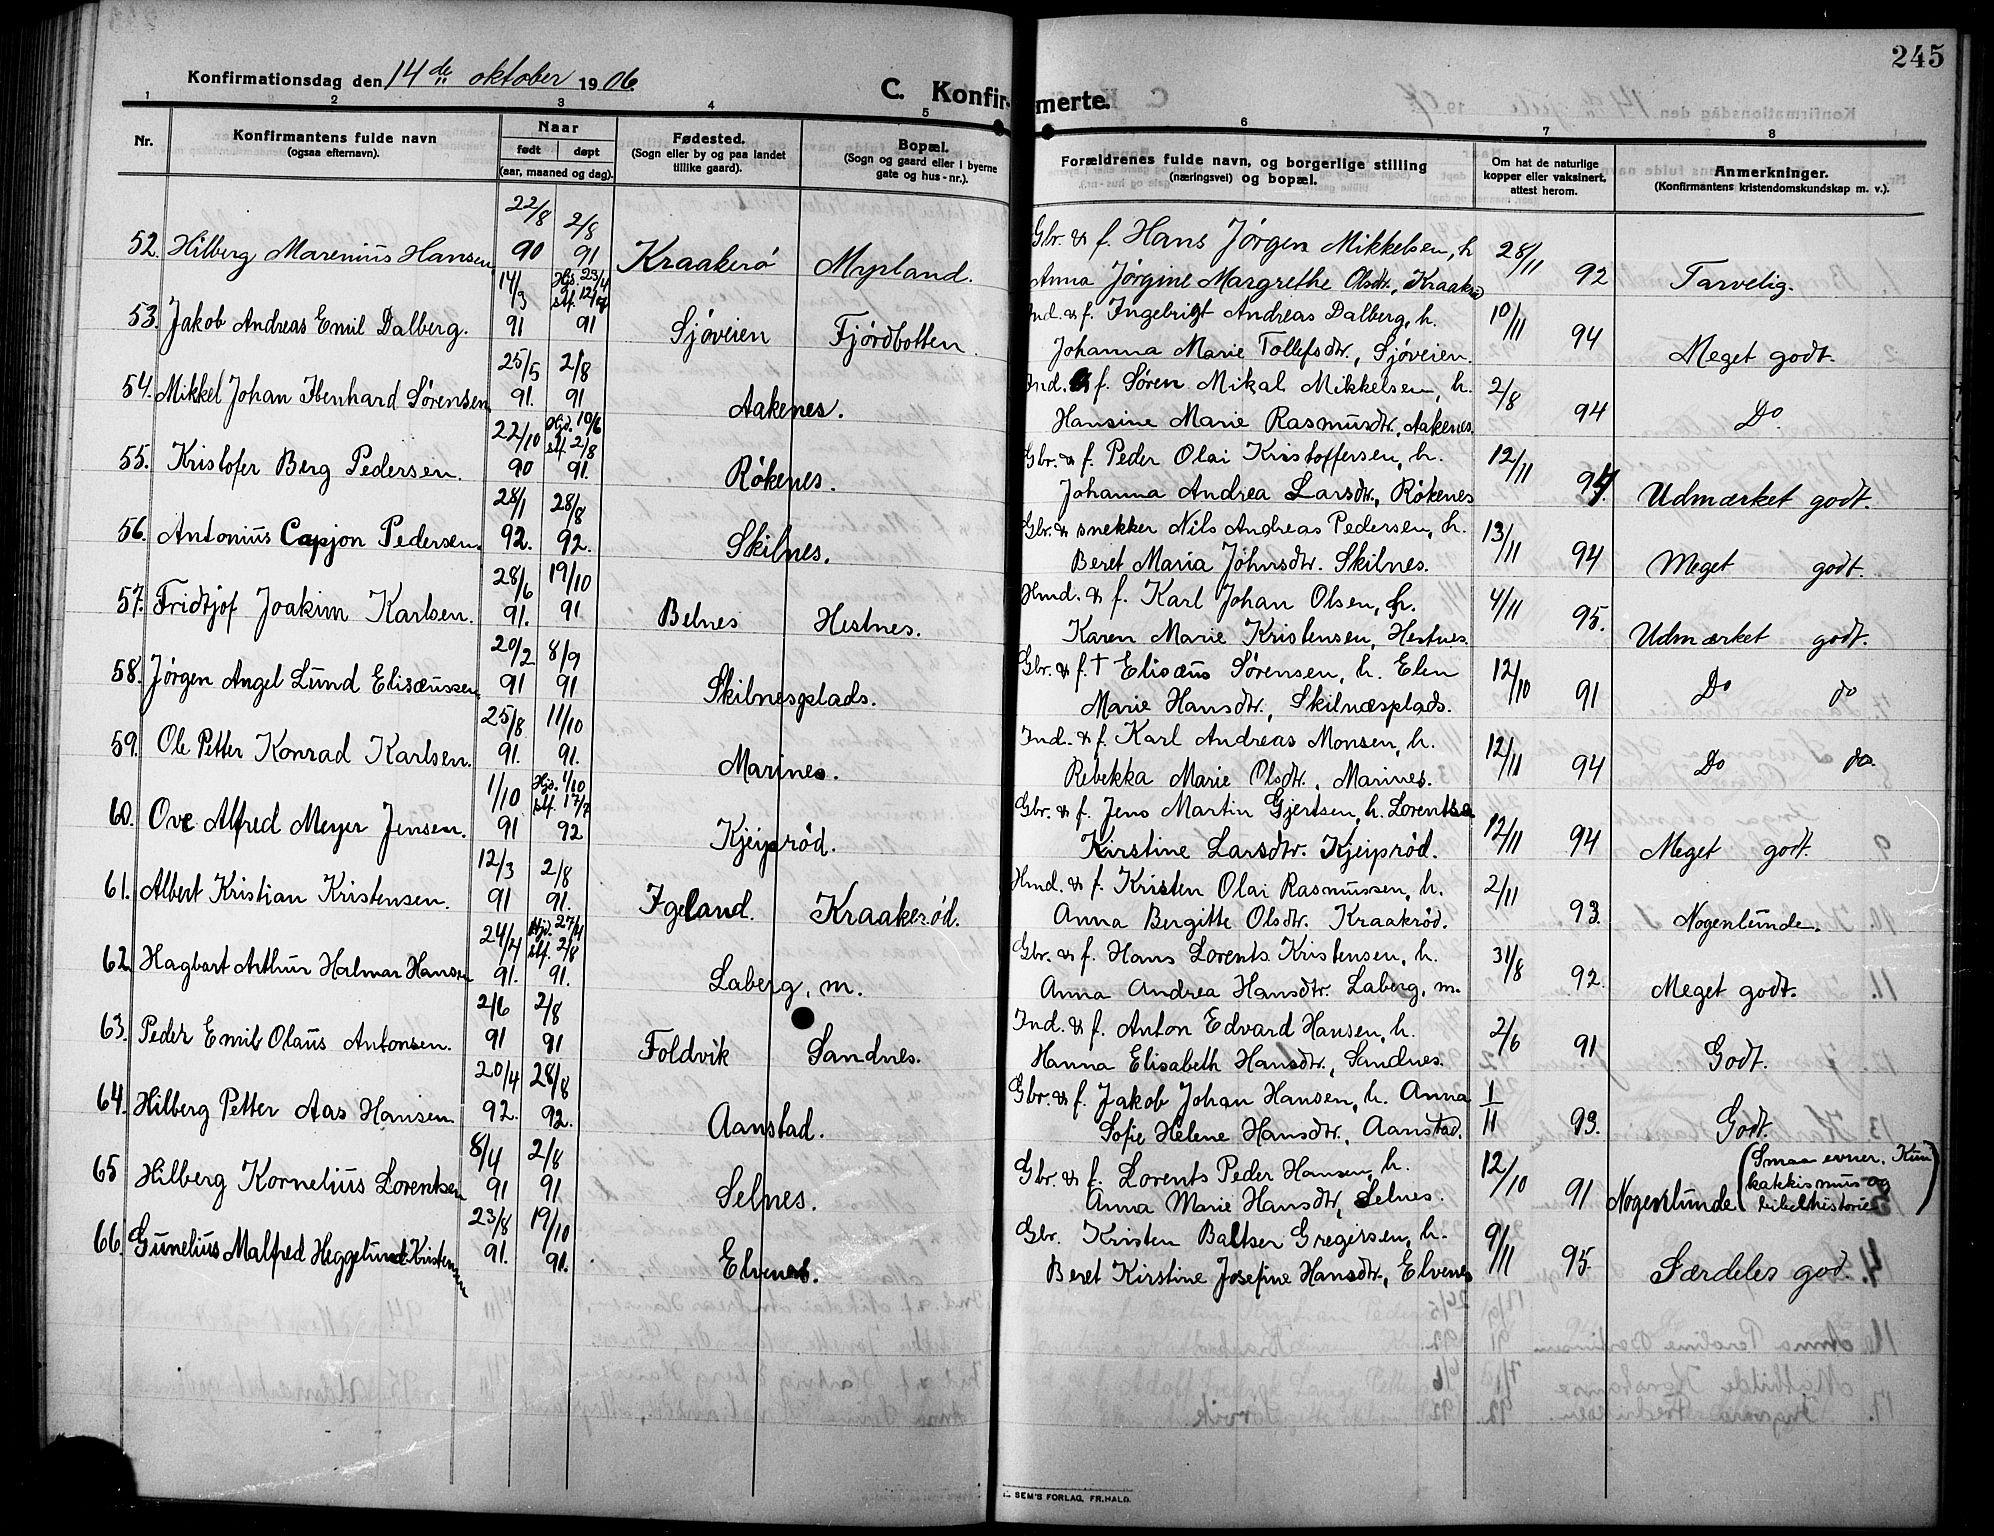 245
Konfirmationsdag den 14 de oktober 1906.
C. Konfirmerte.
1 2 3 4 5 6 7 8
Nr.
Konfirmantens fulde navn
(ogsaa efternavn).
Naar
født døpt
(aar, maaned og dag).
Fødested.
(Sogn eller by og paa landet
tillike gaard).
Bopæl.
(Sogn og gaard eller i byerne
gate og hus-nr.).
Forældrenes fulde navn, og borgerlige stilling
(næringsvei) og bopæl.
Om hat de naturlige
kopper eller vaksinert,
attest herom.
Anmerkninger.
(Konfirmantens kristendomskundskap m. v.).
22/8 2/8 Gbr. & f. Hans Jørgen Mikkelsen, h 28/11
52. Hilberg Marenius Hansen 90 91 Kraakerø Myrland. Anna Jørgine Margrethe Olsdtr., Kraakrø 92 Tarvelig.
14/3 Hjd. 23/4 stf. 12/7 Ind. & f. Ingebrigt Andreas Dalberg, h. 10/11
53. Jakob Andreas Emil Dalberg. 91 91 Sjøveien Fjordbotten. Johanna Marie Tollefsdtr., Sjøveien. 94 Meget godt.
25/5 2/8 Ind. & f. Søren Mikal Mikkelsen, h. 2/8
54. Mikkel Johan Ibenhard Sørensen 91. 91 Aakenes. Hansine Marie Rasmusdtr., Aakenes. 94 Do
22/10 Hjd. 10/6 stf. 2/8 Gbr. & f. Peder Olai Kristoffersen, h. 12/11
55. Kristofer Berg Pedersen. 90 91. Røkenes. Johanna Andrea Larsdtr., Røkenes 94 Udmærket godt.
28/1 28/8 Gbr. & snekker Nils Andreas Pedersen, h. 13/11
56. Antonius Capjon Pedersen. 92. 92. Skilnes. Beret Maria Johnsdtr. Skilnes. 94 Meget godt.
28/6 19/10 Hmd. & f. Karl Johan Olsen, h. 4/11
57. Fridtjof Joakim Karlsen. 91. 91 Belnes Hestnes. Karen Marie Kristensen, Hestnes. 95. Udmærket godt.
20/2 8/9 Gbr. & f. † Elisæus Sørensen, h. Elen 12/10
58. Jørgen Angel Lund Elisæussen 91 91 Skilnesplads. Marie Hansdtr., Skilnæsplads. 91 Do do
25/8 11/10 Ind. & f. Karl Andreas Monsen, h. 12/11
59. Ole Petter Konrad Karlsen. 91. 91. Marines. Rebekka Marie Olsdtr., Marines. 94 Do do.
1/10 Hjd. 1/10 stf. 17/7 Gbr. & f. Jens Martin Gjertsen, h. Lorentse 12/11
60. Ove Alfred Meyer Jensen. 91 92 Kjeiprød. Kirstine Larsdtr. Kjeiprød. 94 Meget godt.
12/3 2/8 Hmd. & f. Kristen Olai Rasmussen, h. 2/11
61. Albert Kristian Kristensen. 91 91. Igeland. Kraakerød. Anna Bergitte Olsdtr. Kraakrød. 93. Nogenlunde.
24/4 Hjd. 27/4 stf. 2/8 Gbr. & f. Hans Lorents Kristensen, h. 31/8
62. Hagbart Arthur Halmar Hansen 91. 91. Laberg, m. Anna Andrea Hansdtr. Laberg, m. 92. Meget godt.
2/6 2/8 Ind. & f. Anton Edvard Hansen, h. 2/6
63. Peder Emil Olaus Antonsen. 91 91 Foldvik Sandnes. Hanna Elisabeth Hansdtr., Sandnes. 91 Godt.
20/4 28/8 Gbr. & f. Jakob Johan Hansen, h. Anna 1/11
64. Hilberg Petter Aas Hansen 92. 92. Aanstad. Sofie Helene Hansdtr., Aanstad. 93. Godt.
8/4 2/8 Gbr. & f. Lorents Peder Hansen, h. 12/10
65 Hilberg Kornelius Lorentsen 91 91 Selnes. Anna Marie Hansdtr., Selnes. 91 Nogenlunde (Smaa evner. Kun
katekismus og
bibelhistorie)
23/8 19/10 Gbr. Kristen Baltser Gregersen, h. 9/11
66. Gunelius Malfred Heggelund Kristensen 91. 91. Elvenes. Beret Kirstine Josefine Hansdtr., Elvenes 95. Særdeles god.
SEM'S FORLAG, FR.HALD.